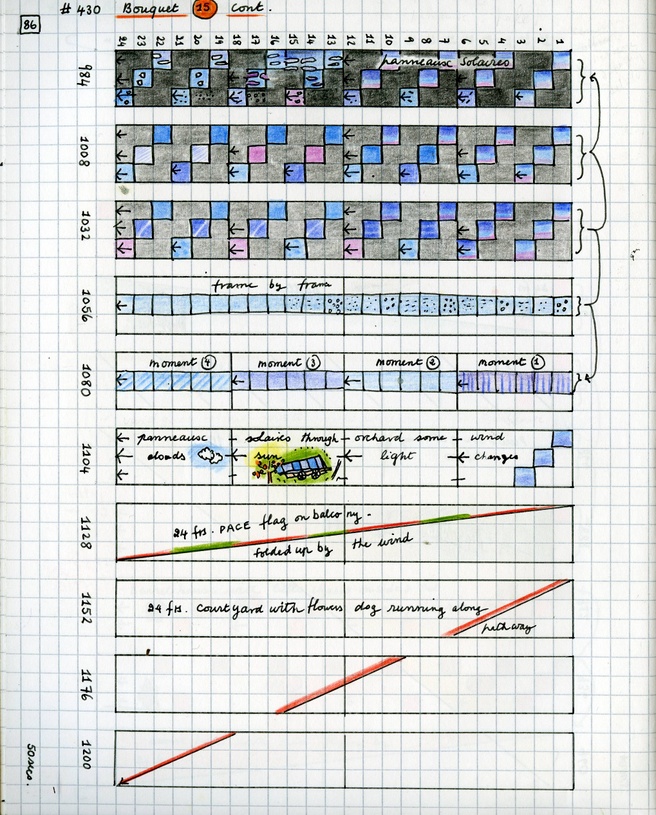 # 430 Bouquet 15 cont.
86
24 23 22 21 20 19 18 17 16 15 14 13 12 11 10 9 8 7 6 5 4 3 2 1
984 panneaux solaires
1008
1032
1056 frame by frame
1080 moment 4 moment 3 moment 2 moment 1
1104 panneaux solaires through orchard some wind
clouds sun light changes
1128 24 frs. PACE flag on balcony.
folded up by the wind
1152 24 frs. Courtyard with flowers dog running along
pathway
1176
1200
50 secs.